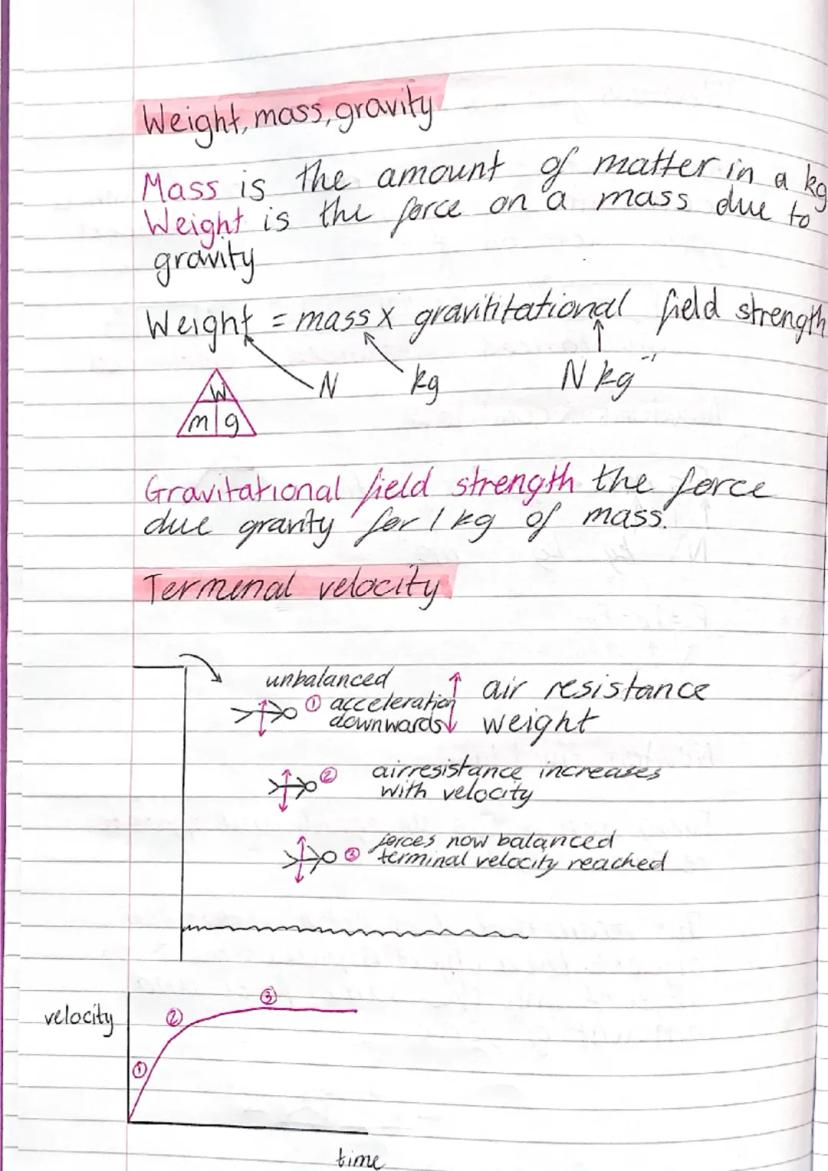 Weight, mass, gravity
Mass is the amount of matter in a kg
Weight is the force on a mass due to
gravity
Weight = mass x gravititational field strength
N kg N kg⁻¹
W
m g
Gravitational field strength the force
due gravity for 1 kg of mass.
Termenal velocity
unbalanced
① acceleration
downwards
↑ air resistance
↓ weight
② airresistance increases
with velocity
③ forces now balanced
terminal velocity reached
velocity
① ② ③
time